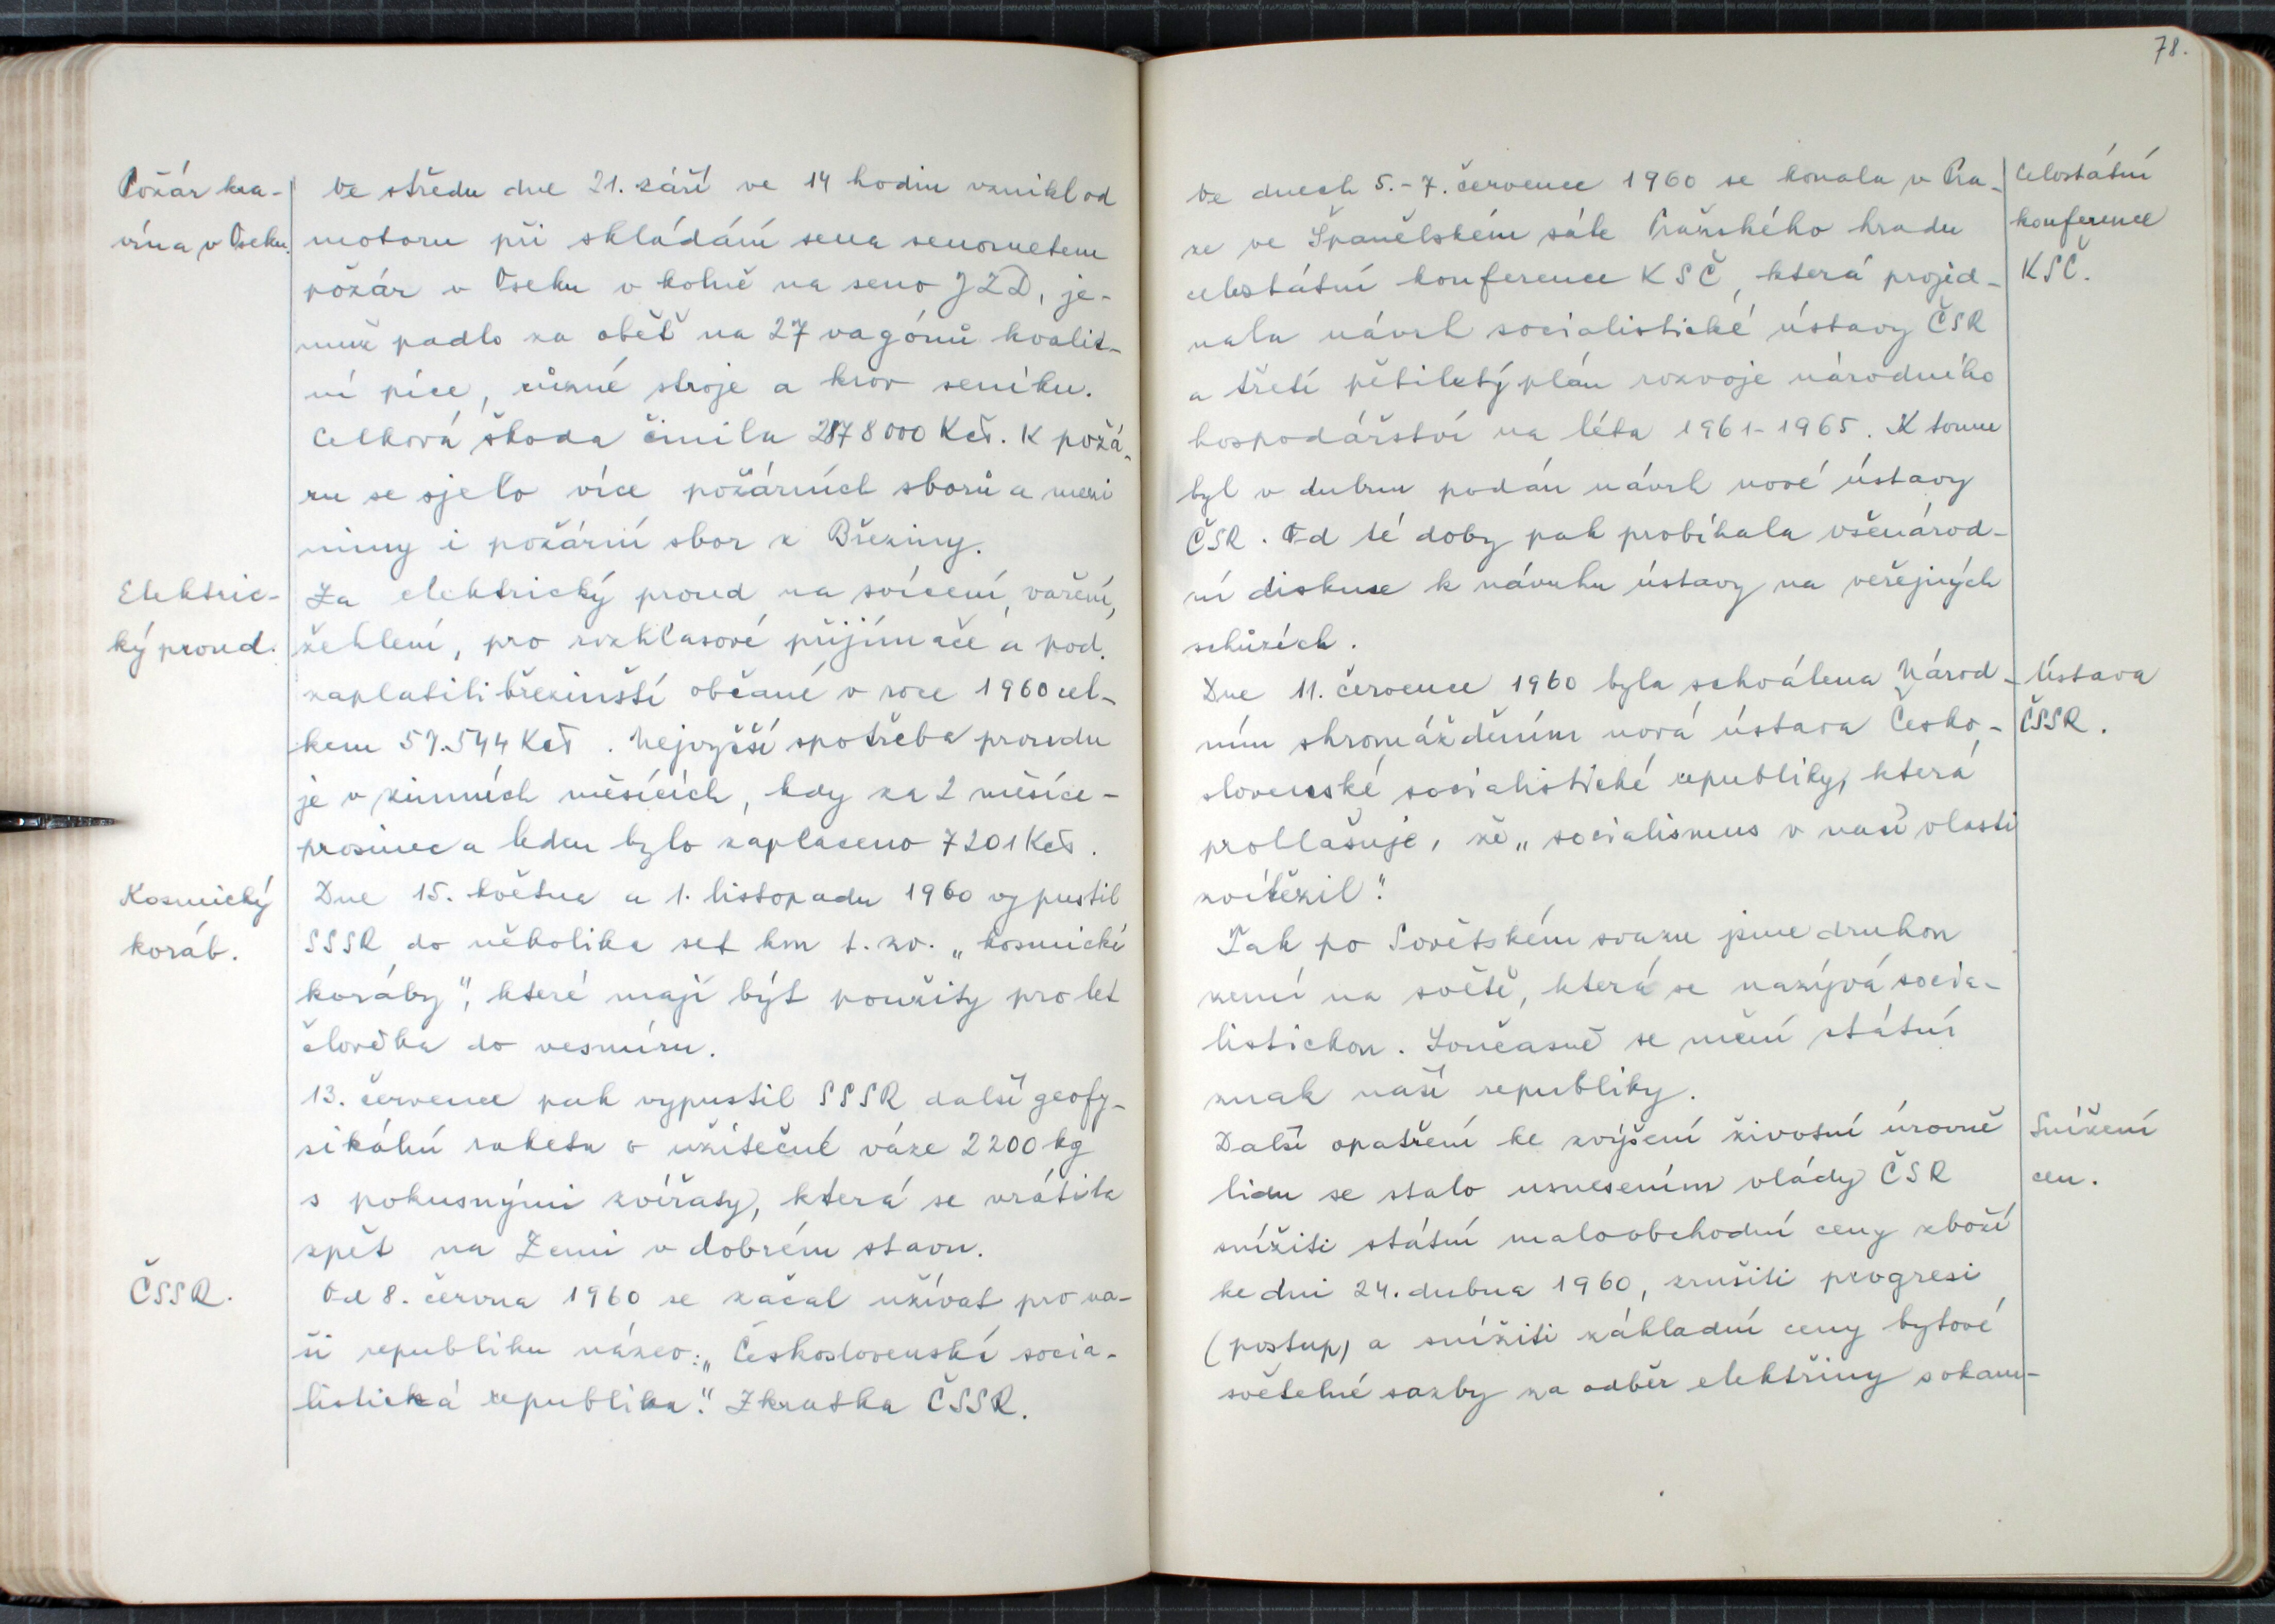 78.
Požár kra-
vína v Oseku.
Ve středu dne 21. září ve 14 hodin vznikl od
motoru při skládání sena senometem
požár v Oseku v kolně na seno JZD, je-
muž padlo za oběť na 27 vagónů kvalit-
ní píce, různé stroje a krov seníku.
Celková škoda činila 278 000 Kčs. K požá-
ru se sjelo více požárních sborů a mezi
nimy i požární sbor z Březiny.
Elektric-
ký proud.
Za elektrický proud na svícení, vaření,
žehlení, pro rozhlasové přijímače a pod.
zaplatili březinští občané v roce 1960 cel-
kem 57.544 Kčs. Nejvyšší spotřeba proudu
je v zimních měsících, kdy za 2 měsíce -
prosinec a leden bylo zaplaceno 7201 Kčs.
Kosmický
koráb.
Dne 15. května a 1. listopadu 1960 vypustil
SSSR do několika set km t. zv. „kosmické
koráby", které mají být použity pro let
člověka do vesmíru.
13. července pak vypustil SSSR další geofy-
sikální raketu o užitečné váze 2200 kg
s pokusnými zvířaty, která se vrátila
zpět na Zemi v dobrém stavu.
ČSSR.
Od 8. června 1960 se začal užívat pro na-
ši republiku název: „Československá socia-
listická republika". Zkratka ČSSR.
Ve dnech 5.-7. července 1960 se konala v Pra-
ze ve Španělském sále Pražského hradu
celostátní konference KSČ, která projed-
nala návrh socialistické ústavy ČSR
a třetí pětiletý plán rozvoje národního
hospodářství na léta 1961-1965. K tomu
byl v dubnu podán návrh nové ústavy
ČSR. Od té doby pak probíhala všenárod-
ní diskuse k návrhu ústavy na veřejných
schůzích.
Celostátní
konference
KSČ.
Dne 11. července 1960 byla schválena Národ-
ním shromážděním nová ústava Česko-
slovenské socialistické republiky, která
prohlašuje, že „socialismus v naší vlasti
zvítězil".
Ústava
ČSSR.
Tak po Sovětském svazu jsme druhou
zemí na světě, která se nazývá socia-
listickou. Současně se mění státní
znak naší republiky.
Další opatření ke zvýšení životní úrovně
lidu se stalo usnesením vlády ČSR
snížiti státní maloobchodní ceny zboží
ke dni 24. dubna 1960, zrušiti progresi
(postup) a snížiti základní ceny bytové
světelné sazby za odběr elektřiny s okam-
Snížení
cen.